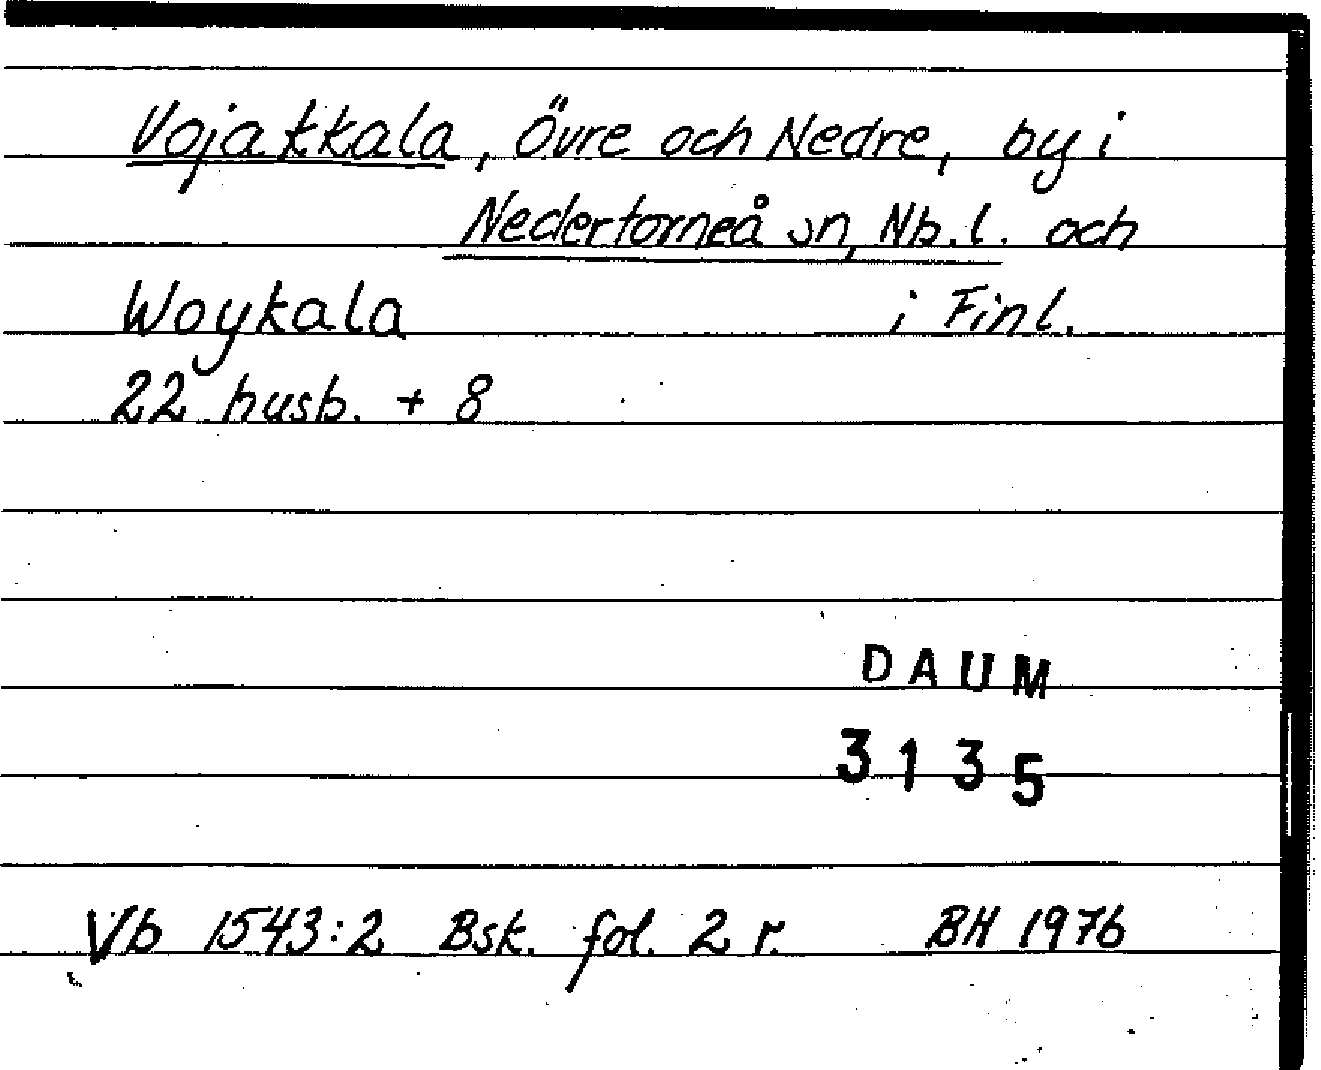 Vojakkala, Övre och Nedre, by i
Nedertorneå sn, Nb. l. och
Woykala i Finl.
22 husb. + 8
DAUM
3135
Vb 1543:2 Bsk. fol. 2 r. BH 1976